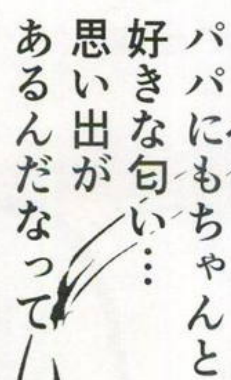 パパにもちゃんと
好きな匂い…
思い出が
あるんだなって